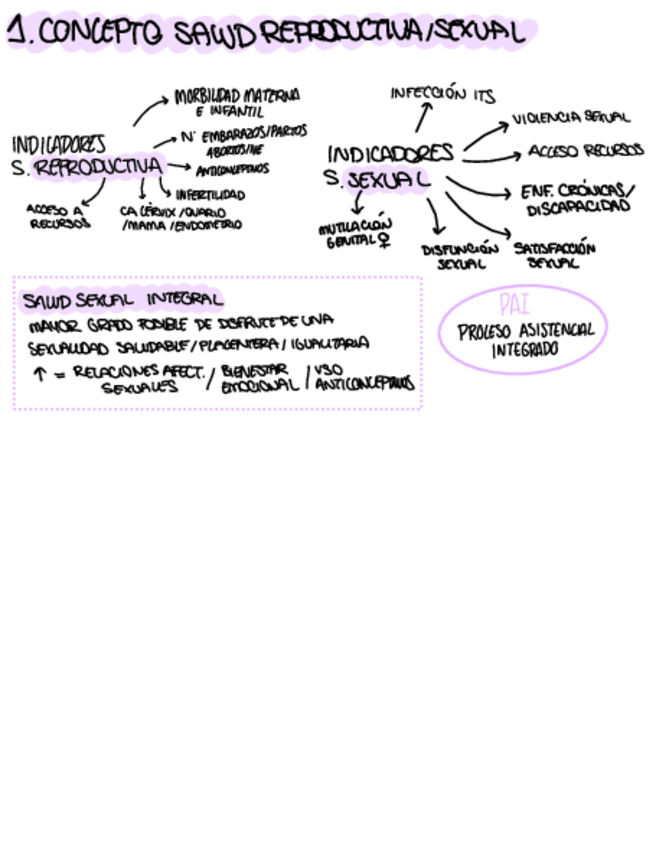 1. CONCEPTO SALUD REPRODUCTIVA/SEXUAL
INDICADORES
S. REPRODUCTIVA
MORBILIDAD MATERNA
E INFANTIL
Nº EMBARAZOS/PARTOS
ABORTOS/IVE
ANTICONCEPTIVOS
INFERTILIDAD
CA CÉRVIX/OVARIO
/MAMA/ENDOMETRIO
ACCESO A
RECURSOS
INDICADORES
S. SEXUAL
INFECCIÓN ITS
VIOLENCIA SEXUAL
ACCESO RECURSOS
ENF. CRÓNICAS/
DISCAPACIDAD
SATISFACCIÓN
SEXUAL
DISFUNCIÓN
SEXUAL
MUTILACIÓN
GENITAL ♀
SALUD SEXUAL INTEGRAL
MAYOR GRADO POSIBLE DE DISFRUTE DE UNA
SEXUALIDAD SALUDABLE/PLACENTERA/IGUALITARIA
↑ = RELACIONES AFECT. / BIENESTAR / USO
SEXUALES EMOCIONAL ANTICONCEPTIVOS
PAI
PROCESO ASISTENCIAL
INTEGRADO